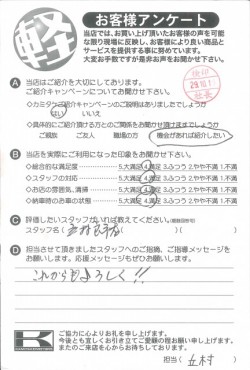 軽
お客様アンケート
当店では、お買い上げ頂いたお客様の声を可能
な限り現場に反映し、お客様により良い商品と
サービスを提供する事に努めています。
大変お手数ですが是非お声をお聞かせ下さい。
A 当店はご紹介を大切にしております。
ご紹介キャンペーンについてお聞かせ下さい。
検印
29.10.1
社長
◇カミタケご紹介キャンペーンのご説明はありましたでしょうか
はい いいえ
◇具体的にご紹介頂ける方とのご関係をお聞かせ頂けますでしょうか
ご親族 ご友人 職場の方 機会があれば紹介したい
B 当店を実際にご利用になった印象をお聞かせ下さい。
◇総合的な満足度 5.大満足 4.満足 3.ふつう 2.やや不満 1.不満
◇スタッフの対応 5.大満足 4.満足 3.ふつう 2.やや不満 1.不満
◇お店の雰囲気、清掃 5.大満足 4.満足 3.ふつう 2.やや不満 1.不満
◇納車時のお車の状態 5.大満足 4.満足 3.ふつう 2.やや不満 1.不満
C 評価したいスタッフがいれば教えてください。(複数回答可)
スタッフ名( )( )
D 担当させて頂きましたスタッフへのご指摘、ご指導メッセージを
お願いします。応援メッセージもぜひお願いします。
これからもよろしく!!
K
ご協力に心よりお礼を申し上げます。
今後とも宜しくお引き立てご愛顧の程お願い申し上げます。
またのご来店を心からお待ちしております。
担当( 立村 )